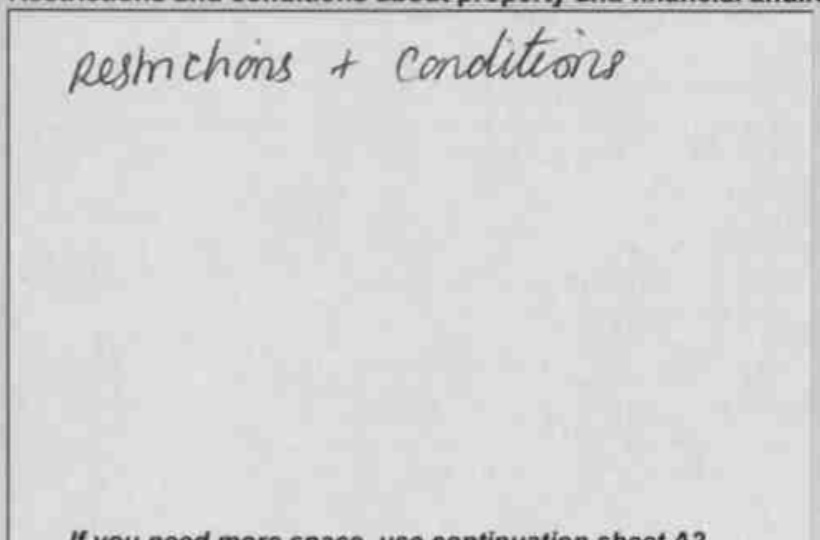 Restrictions and conditions about property and financial affairs
Restrictions + Conditions
If you need more space, use continuation sheet A2